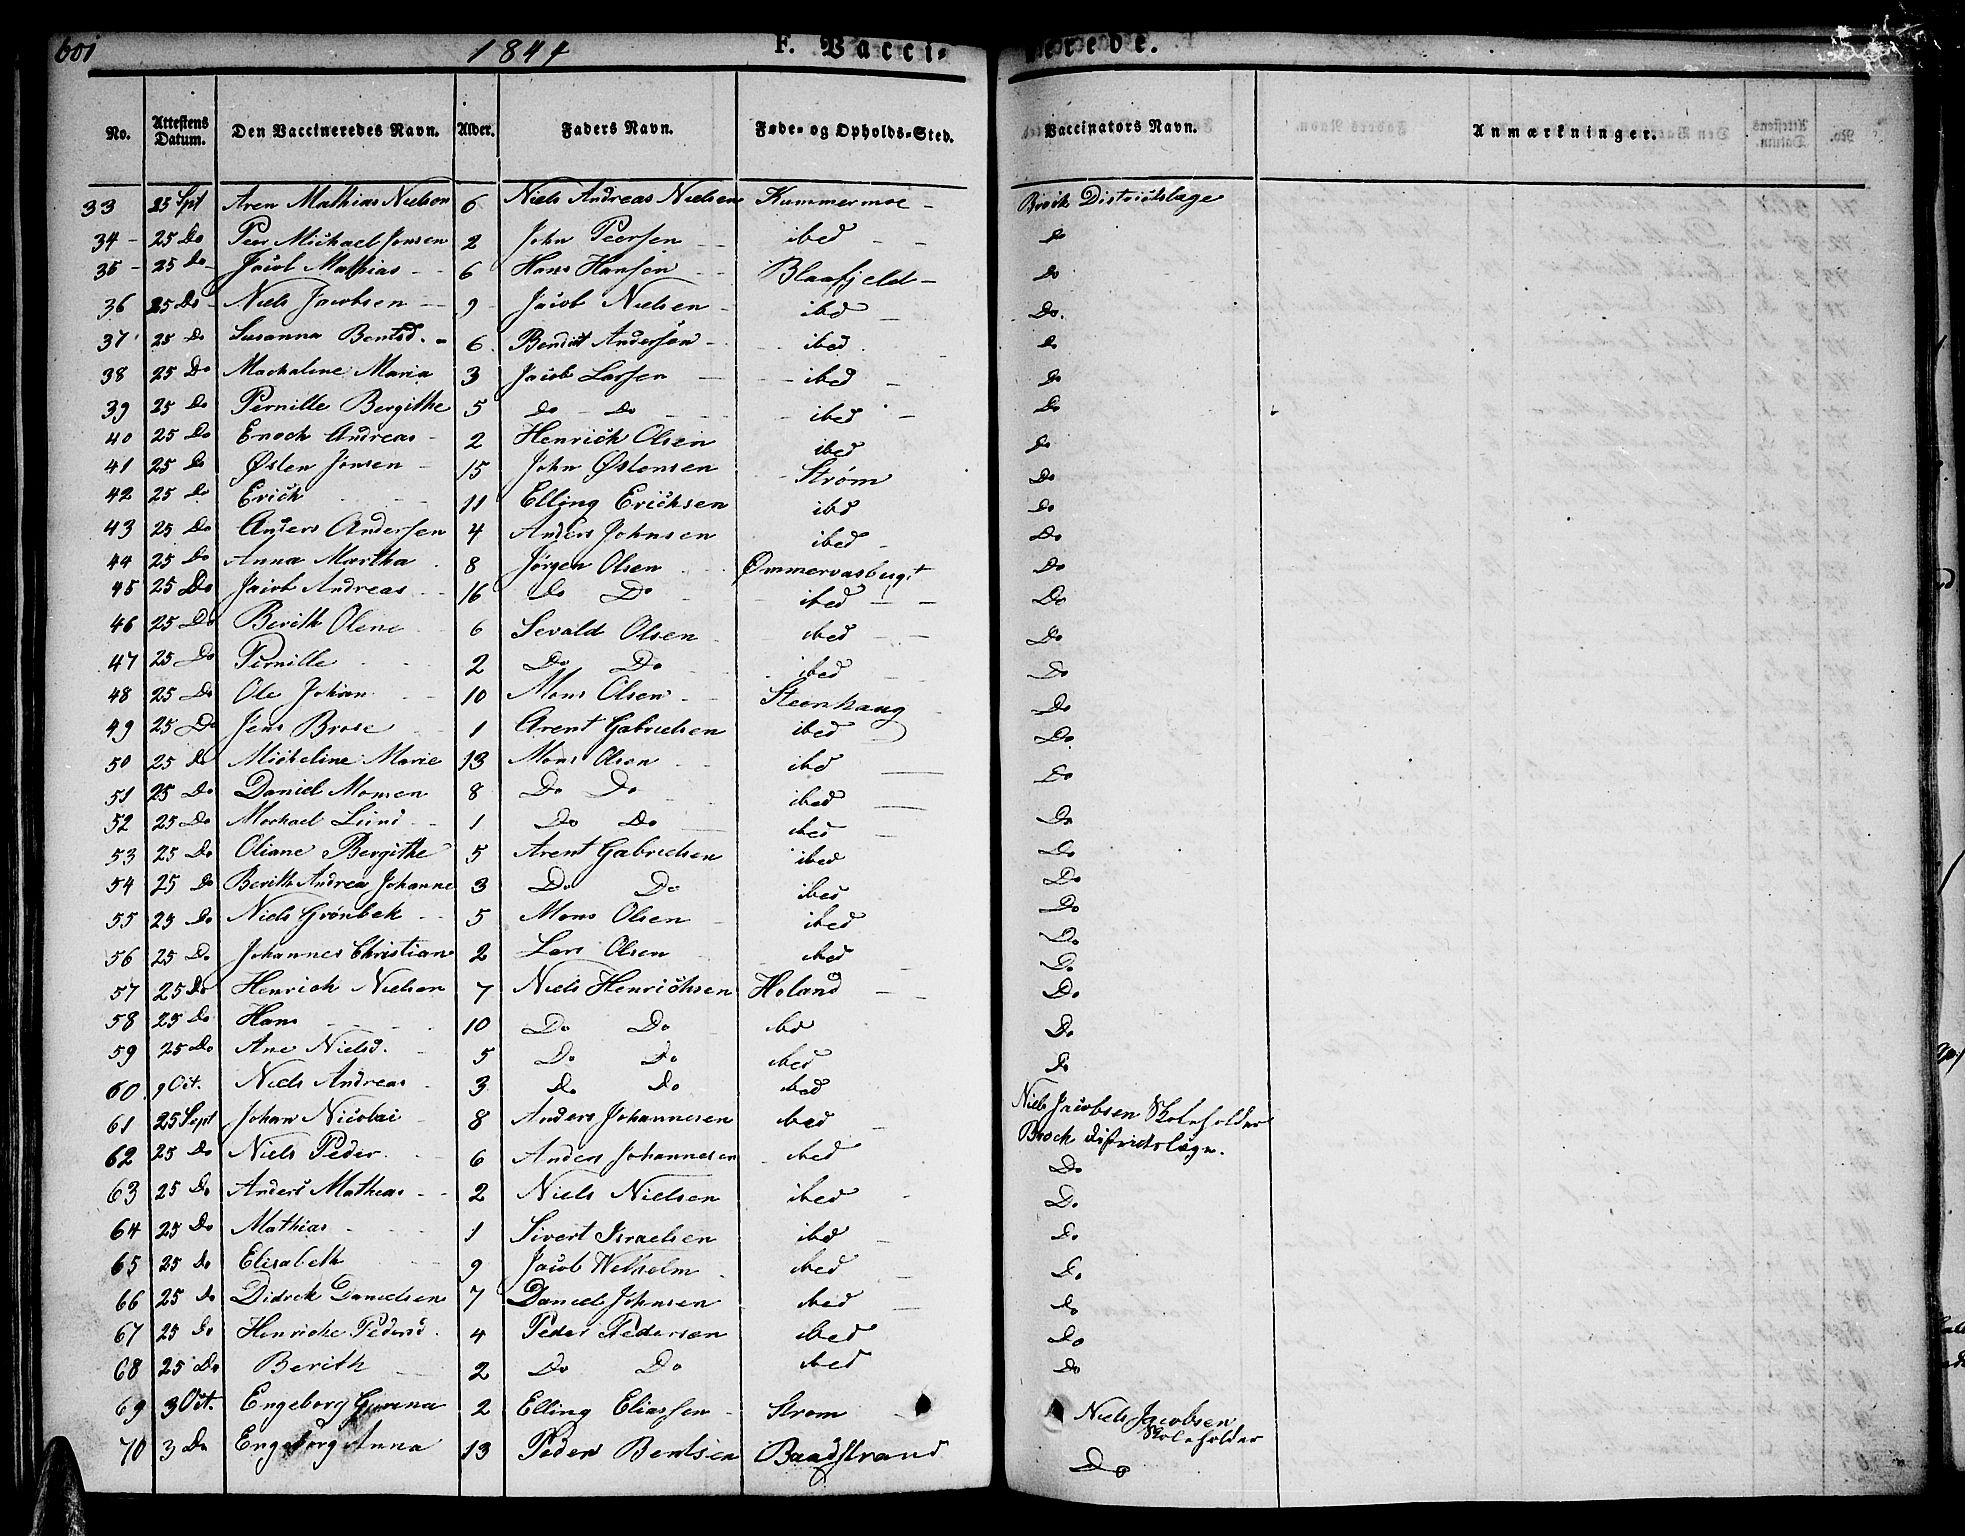 601 1844 F. Vaccinerede.
No. Attestens Datum. Den Vaccineredes Navn. Alder. Faders Navn. Føde- og Opholds-Sted. Vaccinators Navn. Anmærkninger.
33 25 Spt Aren Mathias Nielsen 6 Niels Andreas Nielsen Kummermoe Brock Districtslæge
34 25 Do Peer Michael Jonsen 2 John Peersen ibed Do
35 25 Do Jacob Mathias 6 Hans Hansen Blaafjeld Do
36 25 Do Niels Jacobsen 9 Jacob Nielsen ibd Do
37 25 Do Susanna Bentsd. 6 Bendict Andersen ibed Do
38 25 Do Machaline Maria 3 Jacob Larsen ibed Do
39 25 Do Pernille Bergithe 5 Do Do ibed Do
40 25 Do Enoch Andreas 2 Henrich Olsen ibed Do
41 25 Do Østen Jonsen 15 John Østensen Strøm Do
42 25 Do Erich 11 Elling Erichsen ibd Do
43 25 Do Anders Andersen 4 Anders Johnsen ibed Do
44 25 Do Anna Martha 8 Jørgen Olsen Ømmervasbugt Do
45 25 Do Jacob Andreas 16 Do Do ibed Do
46 25 Do Berith Olene 6 Sevald Olsen ibed Do
47 25 Do Pernille 2 Do Do ibed Do
48 25 Do Ole Johan 10 Mons Olsen Steenhaug Do
49 25 Do Jens Brose 1 Arent Gabrielsen ibed Do
50 25 Do Micheline Marie 13 Mons Olsen ibd Do
51 25 Do Daniel Monsen 8 Do Do ibed Do
52 25 Do Mochael Lund 1 Do Do ibed Do
53 25 Do Oliane Bergithe 5 Arent Gabrielsen ibed Do
54 25 Do Berith Andrea Johanne 3 Do Do ibed Do
55 25 Do Niels Grönbek 5 Mons Olsen ibed Do
56 25 Do Johannes Christian 2 Lars Olsen ibed Do
57 25 Do Henrich Nielsen 7 Niels Henrichsen Holand Do
58 25 Do Hans 10 Do Do ibd Do
59 25 Do Ane Nielsd. 5 Do Do ibed Do
60 9 Oct. Niels Andreas 3 Do Do ibed Niels Jacobsen Skoleholder
61 25 Sept Johan Nicolai 8 Anders Johannesen ibed Brock Districtslæge.
62 25 Do Niels Peder 6 Anders Johannesen ibed Do
63 25 Do Anders Mathias 2 Niels Nielsen ibed Do
64 25 Do Mathias 1 Sivert Israelsen ibd Do
65 25 Do Elisabeth 9 Jacob Wilhelm ibed Do
66 25 Do Didrek Danielsen 7 Daniel Johnsen ibed Do
67 25 Do Henriche Pedersd. 4 Peder Pedersen ibed Do
68 25 Do Berith 2 Do Do ibed Do
69 3 Oct. Engeborg Gurina 2 Elling Eliassen Strøm Niels Jacobsen Skoleholder
70 3 Do Engeborg Anna 13 Peder Bentsen Baadstrand Do